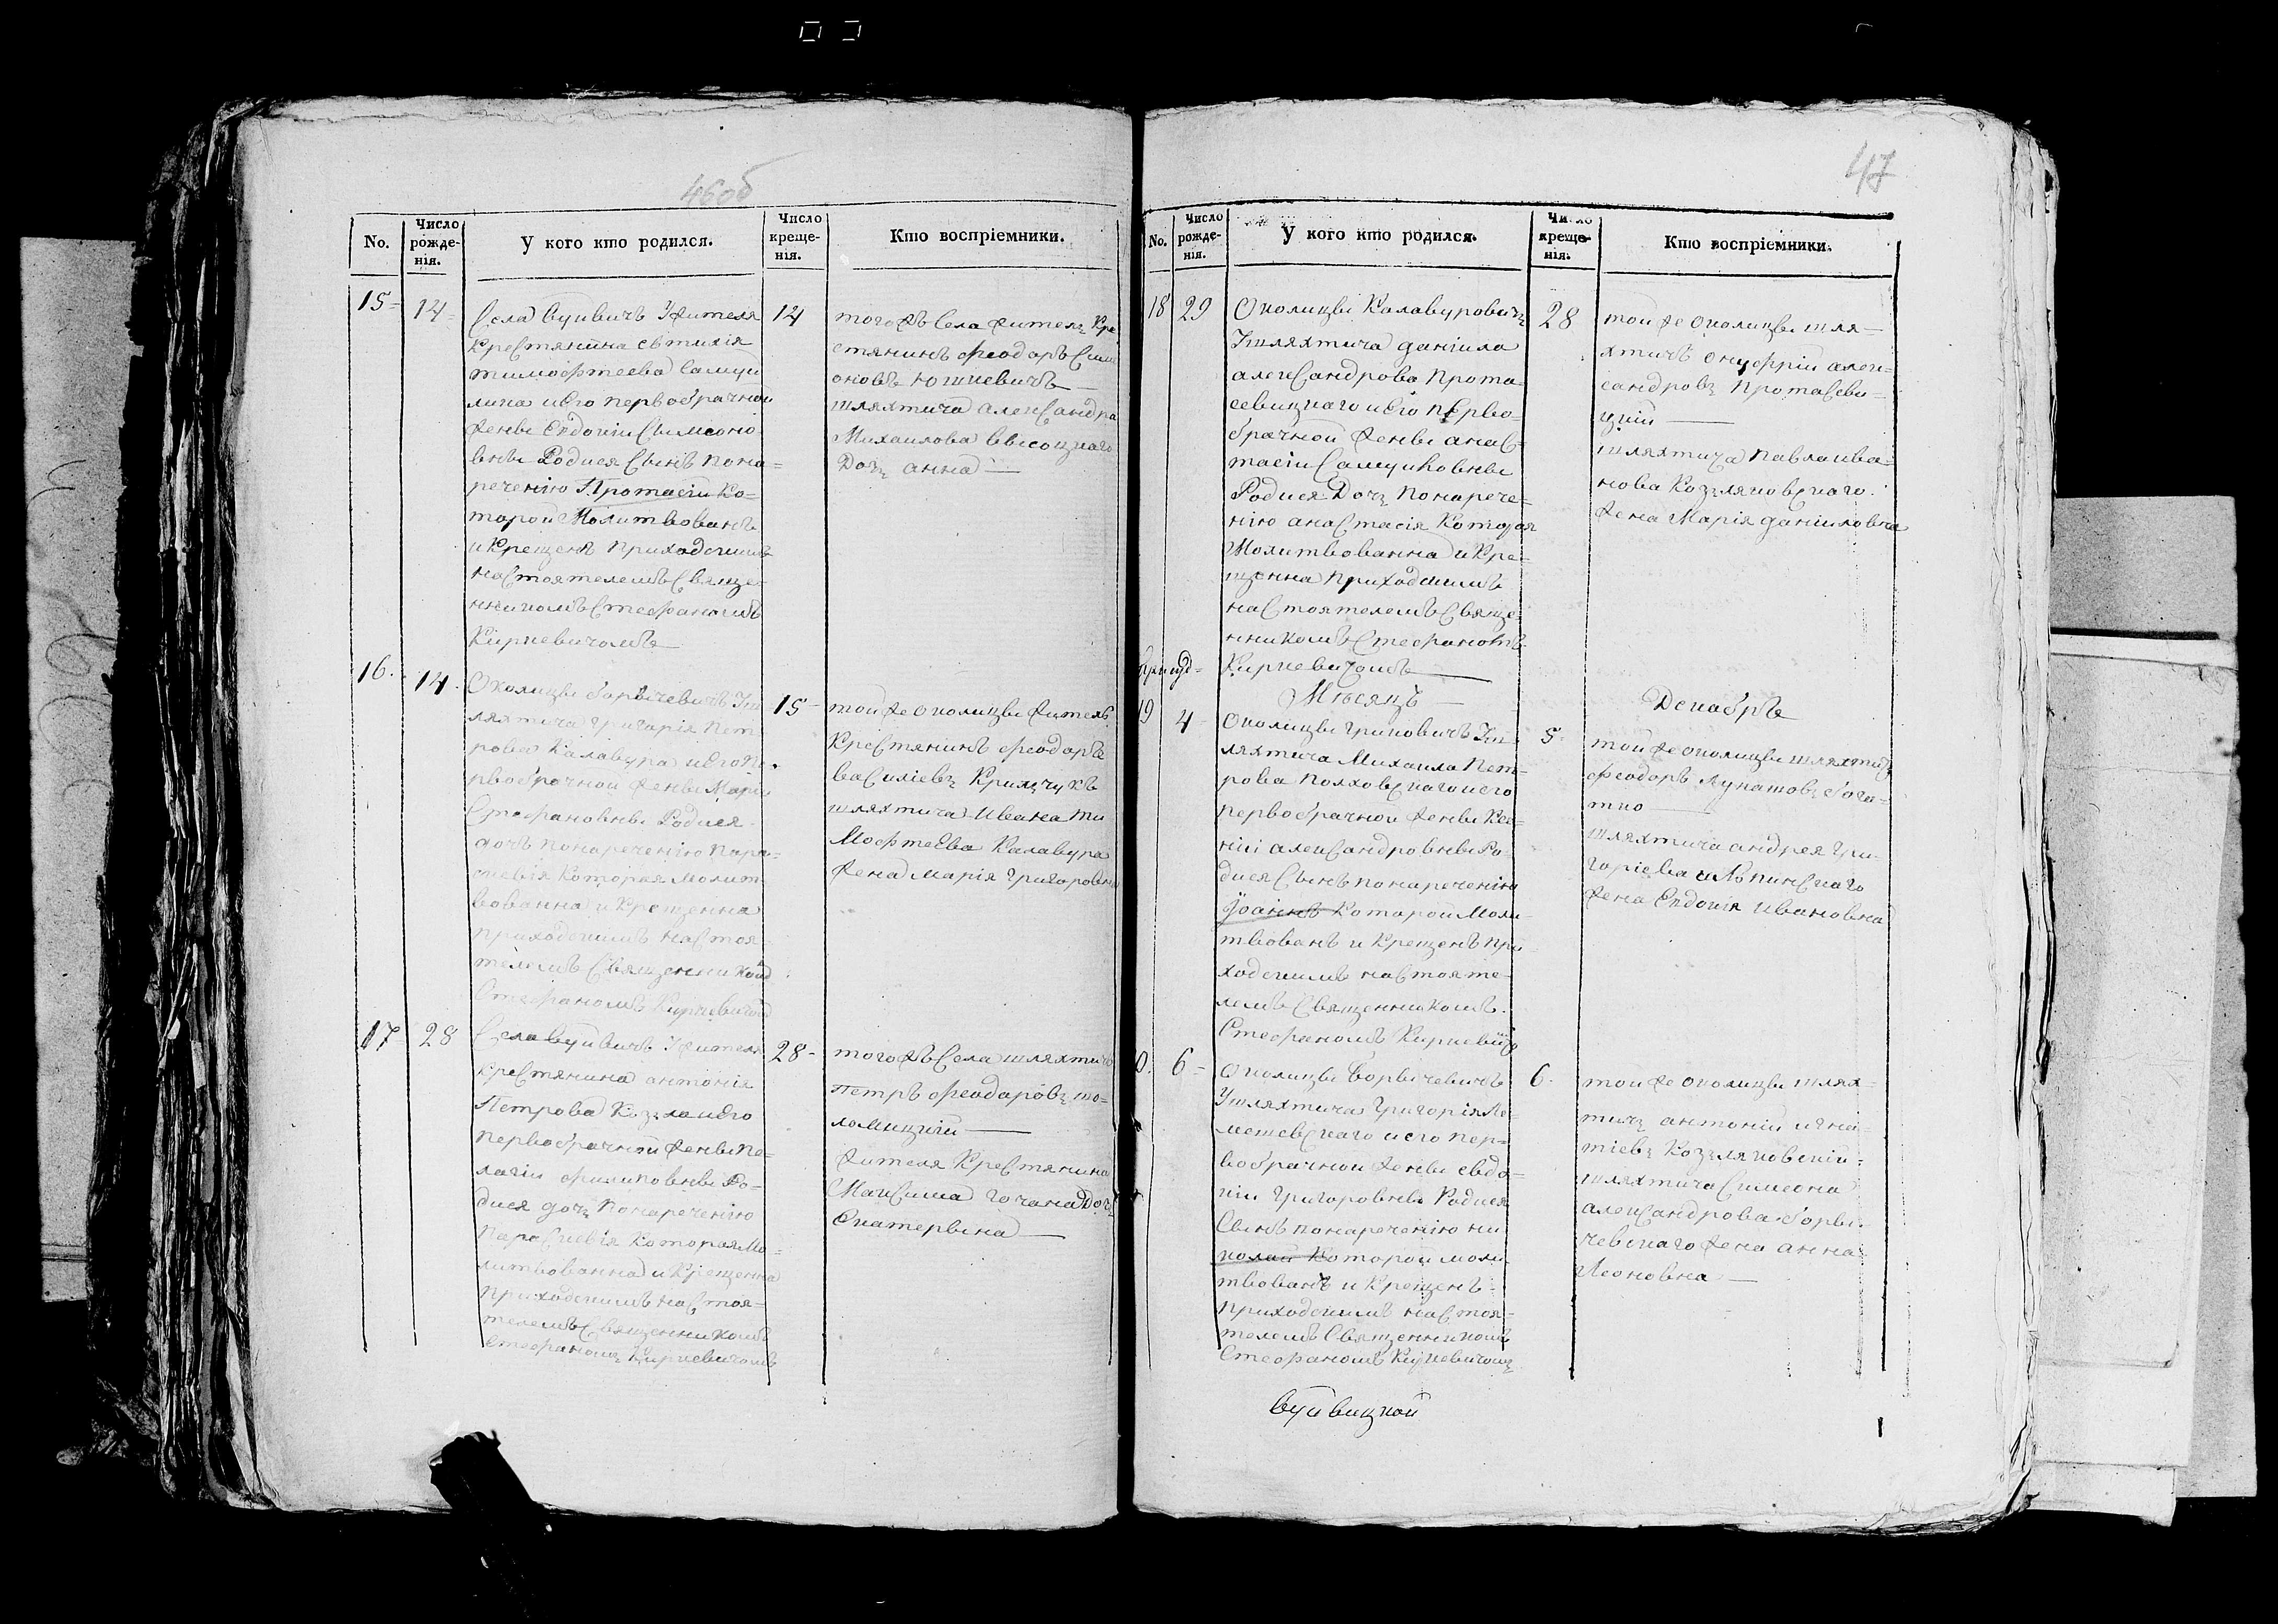 46об
No.
Число рожде-нія.
У кого кто родился.
Число креще-нія.
Кто воспріемники.
15 14
Села Вуйвичъ Жителя
Крестянина Евтихія
Тимофтеева Самуи
лика иего первобрачной
жены Евдокіи Симеоно
вны Родися Сынъ пона=
реченію Протасій Ко=
торой Молитвованъ
и Крещенъ приходскимъ
настоятелемъ Свяще=
нникомъ Стефаномъ
Киркевичомъ
14
тогожъ Села жителя Кре
стянинъ Феодоръ Сим
оновъ Юшкевичъ
шляхтича Александра
Михаилова Высоцкаго
Дочъ анна
16. 14.
Околицы Борычевичъ Уш
ляхтича Григорія Пет
рова Калавура иего пе
рвобрачной жены Маріи
Стефановны Родися
дочъ понареченію Пара=
скевія Которая Молит=
вованна и Крещенна
приходскимъ настоя
телемъ Священникомъ
Стефаномъ Киркевичомъ
15
тойже околицы житель
Крестянинъ Феодоръ
Василіевъ Крижчукъ
шляхтича Ивана Ти
Мофтеева Калавура
жена Марія Григоровна
17 28
Села Вуйвичъ Ужителя
Крестянина антонія
Петрова Козъла иего
первобрачной жены Пе=
лагіи Филиповны Ро=
дися дочъ понареченію
Параскевія Которая Мо=
литвованна и Крещенна
приходскимъ настоя=
телемъ Священникомъ
Стефаномъ Киркевичомъ
28
тогожъ Села шляхтичъ
Петръ Феодоровъ
ломицкій
жителя Крестянина
Максима Гочана Дочъ
Екатерына
47
No.
Число рожде-нія.
У кого кто родился.
Число креще-нія.
Кто воспріемники.
18 29
Околицы Калавуровичъ
Ушляхтича Даніила
александрова Прота=
севицкаго иего перво=
брачной жены анас=
тасіи Самуиловны
Родися Дочъ понарече=
нію анастасія Которая
Молитвованна и Кре=
щенна приходскимъ
настоятелемъ Свяще=
нникомъ Стефаномъ
Киркевичомъ
28
тойже околицы шля
хтичъ Онуфрій алек=
сандровъ Протасеви=
цкій
шляхтича Павла ива=
нова Козъляковскаго
жена Марія Даніиловна
Мѣсяцъ Декабръ
19 4
Околицы Гриковичъ Уш=
ляхтича Михаила Пет=
рова Полховскаго иего
первобрачной жены Ксе=
ніи александровны Ро=
дися Сынъ понареченію
Іоаннъ Которой Моли=
твованъ и Крещенъ при
ходскимъ настояте=
лемъ Священникомъ
Стефаномъ Киркевичо
5
тойже околицы шляхтичъ
Феодоръ Лукатовъ Бога=
тко
шляхтича андрея Гри
горіева
жена Евдокія Ивановна
6
Околицы Борычевичъ
Ушляхтича Григорія Ле=
мешевскаго иего пер=
вобрачной жены евдо=
кіи Григоровны Родися
Сынъ понареченію ни
колай Которой моли
твованъ и Крещенъ
приходскимъ настоя=
телемъ Священникомъ
Стефаномъ Киркевичомъ
6
тойже околицы шлях=
тичъ антоній игна
тіевъ Козъляковскій=
шляхтича Симеона
александрова Боры
чевскаго жена анна
Леоновна
Вуйвицкой